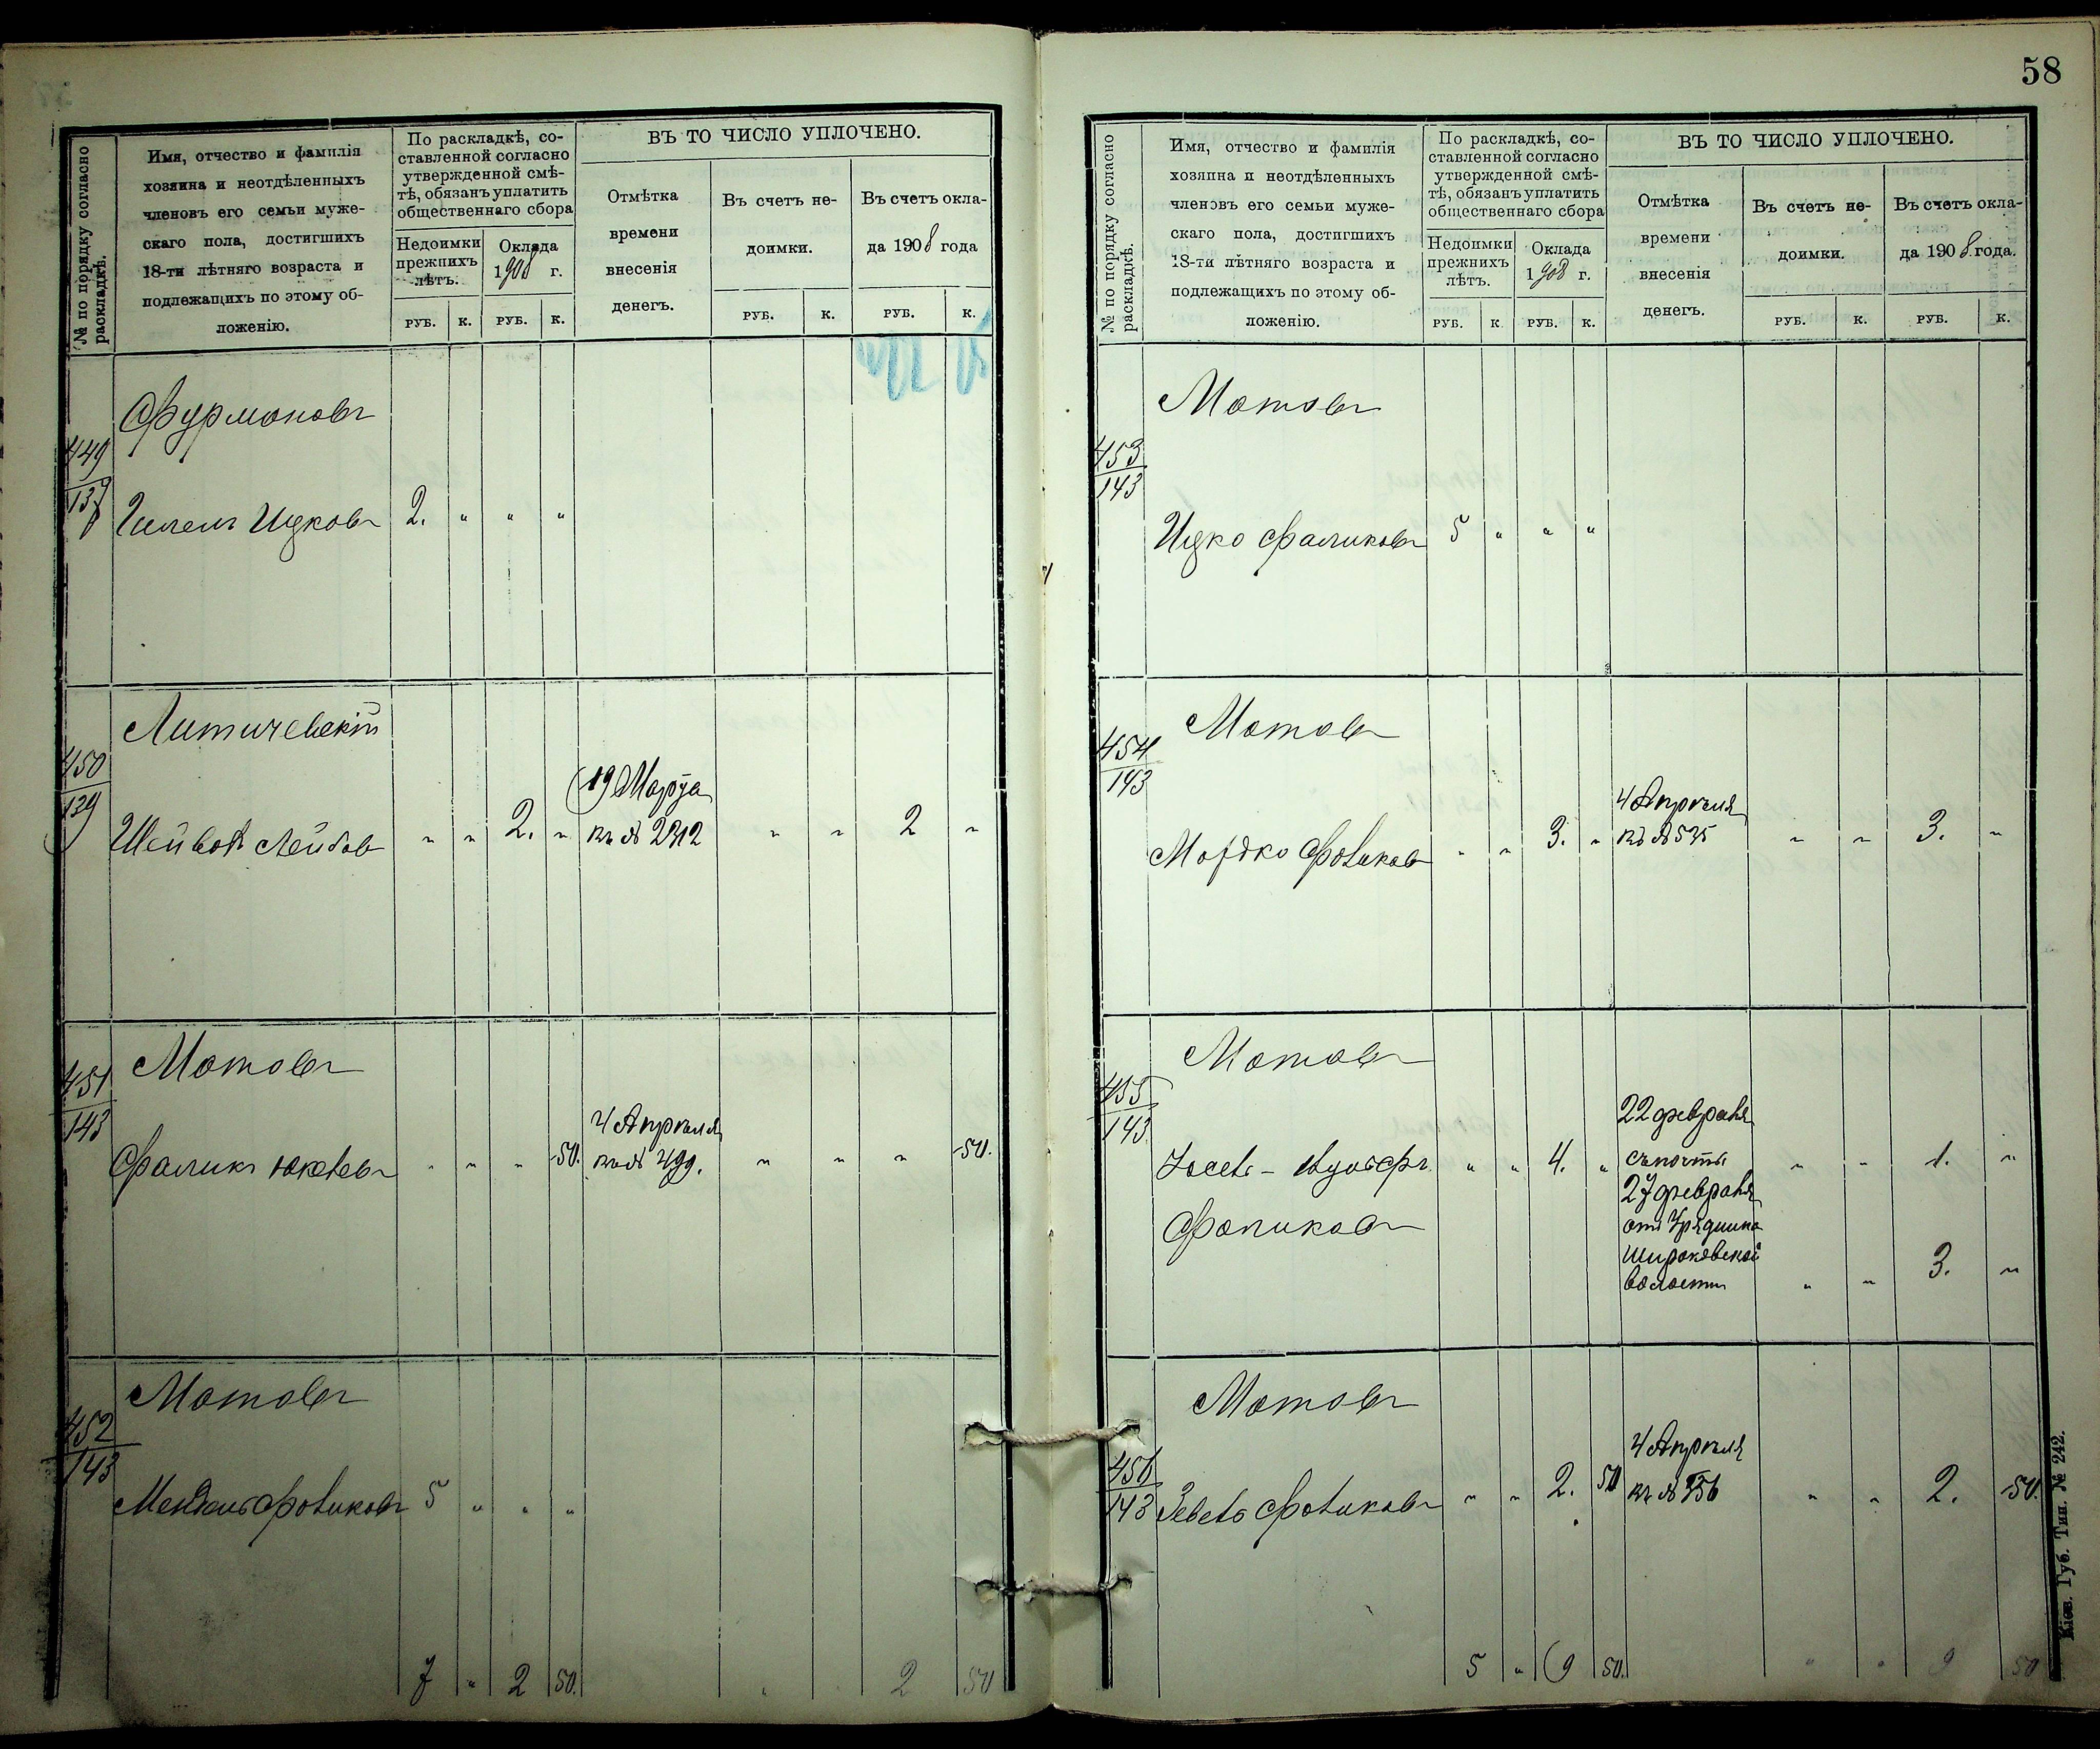 58
№ по порядку согласно
раскладкѣ.
Имя, отчество и фамилія
хозяина и неотдѣленныхъ
членовъ его семьи муже-
скаго пола, достигшихъ
18-ти лѣтняго возраста и
подлежащихъ по этому об-
ложенію.
По раскладкѣ, со-
ставленной согласно
утвержденной смѣ-
тѣ, обязанъ уплатить
общественнаго сбора
Недоимки
прежнихъ
лѣтъ.
Оклада
1908 г.
РУБ. К. РУБ. К.
ВЪ ТО ЧИСЛО УПЛОЧЕНО.
Отмѣтка
времени
внесенія
денегъ.
Въ счетъ не-
доимки.
РУБ. К.
Въ счетъ окла-
да 1908 года
РУБ. К.
Фурмановъ
449
137
Ицковъ 2. " " "
Литичевскій
450
139
Лейбовъ " " 2. " 19 Марта
кв № 2312 " " 2 "
Мотовъ
451
143
Фаликъ " " " 50. 4 Апрѣля
кв № 499. " " " 50.
Мотовъ
452
143
Мендель Фаликовъ 5 " " "
7 " 2 50. " 2 50
№ по порядку согласно
раскладкѣ.
Имя, отчество и фамилія
хозяина и неотдѣленныхъ
членовъ его семьи муже-
скаго пола, достигшихъ
18-ти лѣтняго возраста и
подлежащихъ по этому об-
ложенію.
По раскладкѣ, со-
ставленной согласно
утвержденной смѣ-
тѣ, обязанъ уплатить
общественнаго сбора
Недоимки
прежнихъ
лѣтъ.
Оклада
1908 г.
РУБ. К РУБ. К.
ВЪ ТО ЧИСЛО УПЛОЧЕНО.
Отмѣтка
времени
внесенія
денегъ.
Въ счетъ не-
доимки.
РУБ. К.
Въ счетъ окла-
да 1908 года.
РУБ. К.
Мотовъ
453
143
Ицко Фаликовъ 5 " " "
Мотовъ
454
143
Мордко Фаликовъ " " 3. " 4 Апрѣля
кв № 535 " " 3. "
Мотовъ
455
143
Фаликовъ " " 4. " 22 февраля
съ почты " " 1. "
27 февраля
отъ Урядника
Широковской
волости " " 3. "
Мотовъ
456
143
Фаликовъ " " 2. 50 4 Апрѣля
кв № 556 " " 2. 50.
5 " 9 50. " " 9 50
Кіев. Губ. Тип. № 242.